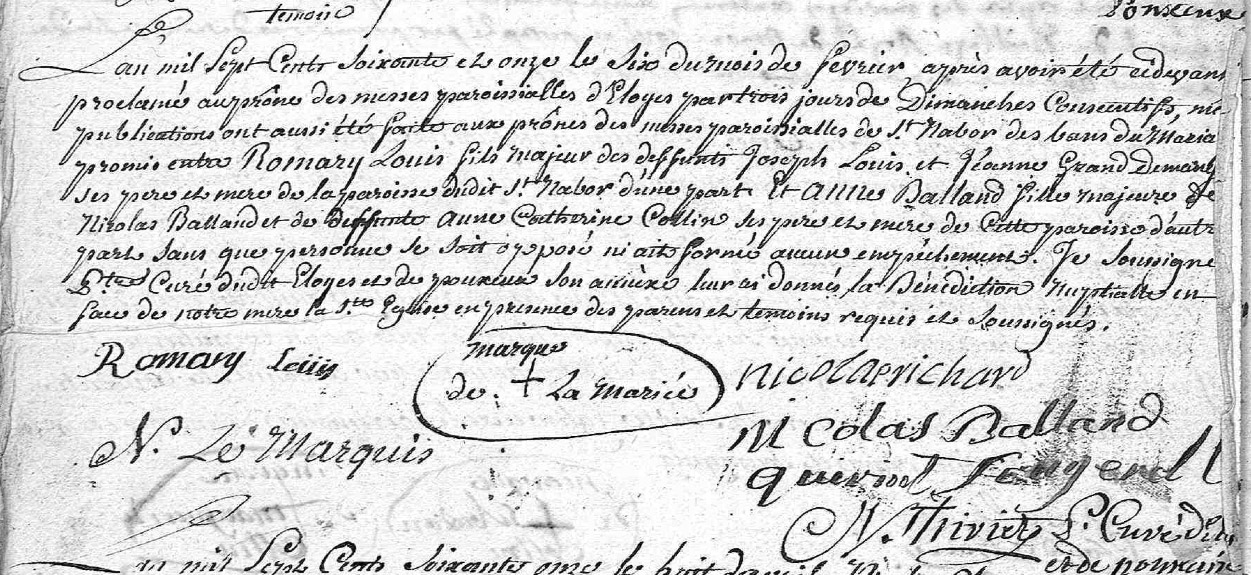 temoin
Pouxeux
L'an mil Sept Cents Soixante et onze le Six du mois de fevrier, après avoir été cidevant
proclamé au prône des messes paroissialles d'Eloyes par trois jours de Dimanches Consecutifs,
publications ont aussi été faite aux prônes des messes paroissialles de St Nabor des bans du Maria
promis entre Romary Louis fils majeur des deffunts Joseph Louis et Jeanne Grand demang
ses pere et mere de la paroisse dudit St Nabor d'une part Et Anne Balland fille majeure de
Nicolas Balland et de deffunte anne Catherine Collin ses pere et mere de Cette paroisse d'autr
part sans que personne se soit opposé ni ait formé aucun empêchement. Je Soussigné
P.tre Curé dudit Eloyes et de pouxeux son annéxe leur ai donnés la Bénédiction Nuptialle en
face de notre mere la Ste Eglise en presence des parens et temoins requis et Soussignés.
Romary Louis
marque
de + La Mariée
nicolas richard
N. Le Marquis
Nicolas Balland
N. Thiriet P. Curé d'El
et de pouxeux
L'an mil Sept Cents Soixante onze le huit